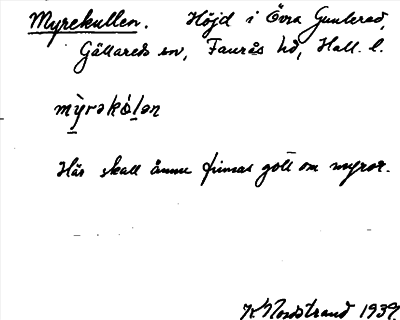 Myrekullen. Höjd i Övra Gunnered,
Gällareds sn, Faurås hd, Hall. l.
mỳrəkólən
Här skall ännu finnas gott om myror.
K Nordstrand 1939